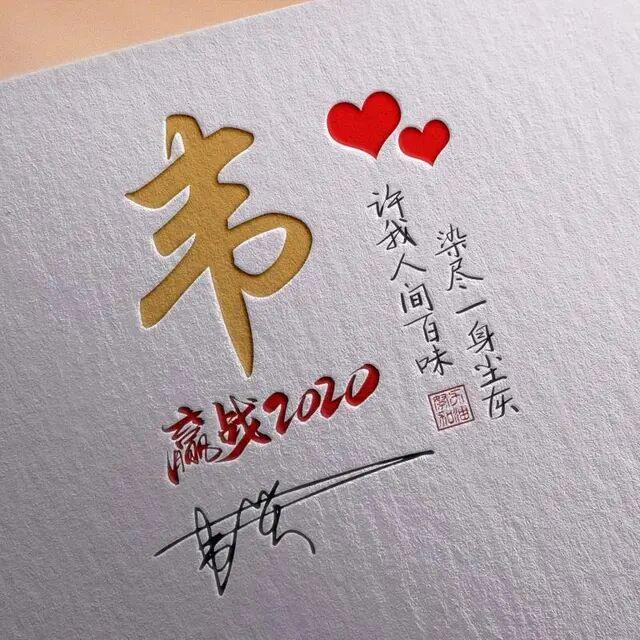 韦
染尽一身尘灰
许我人间百味
赢战2020